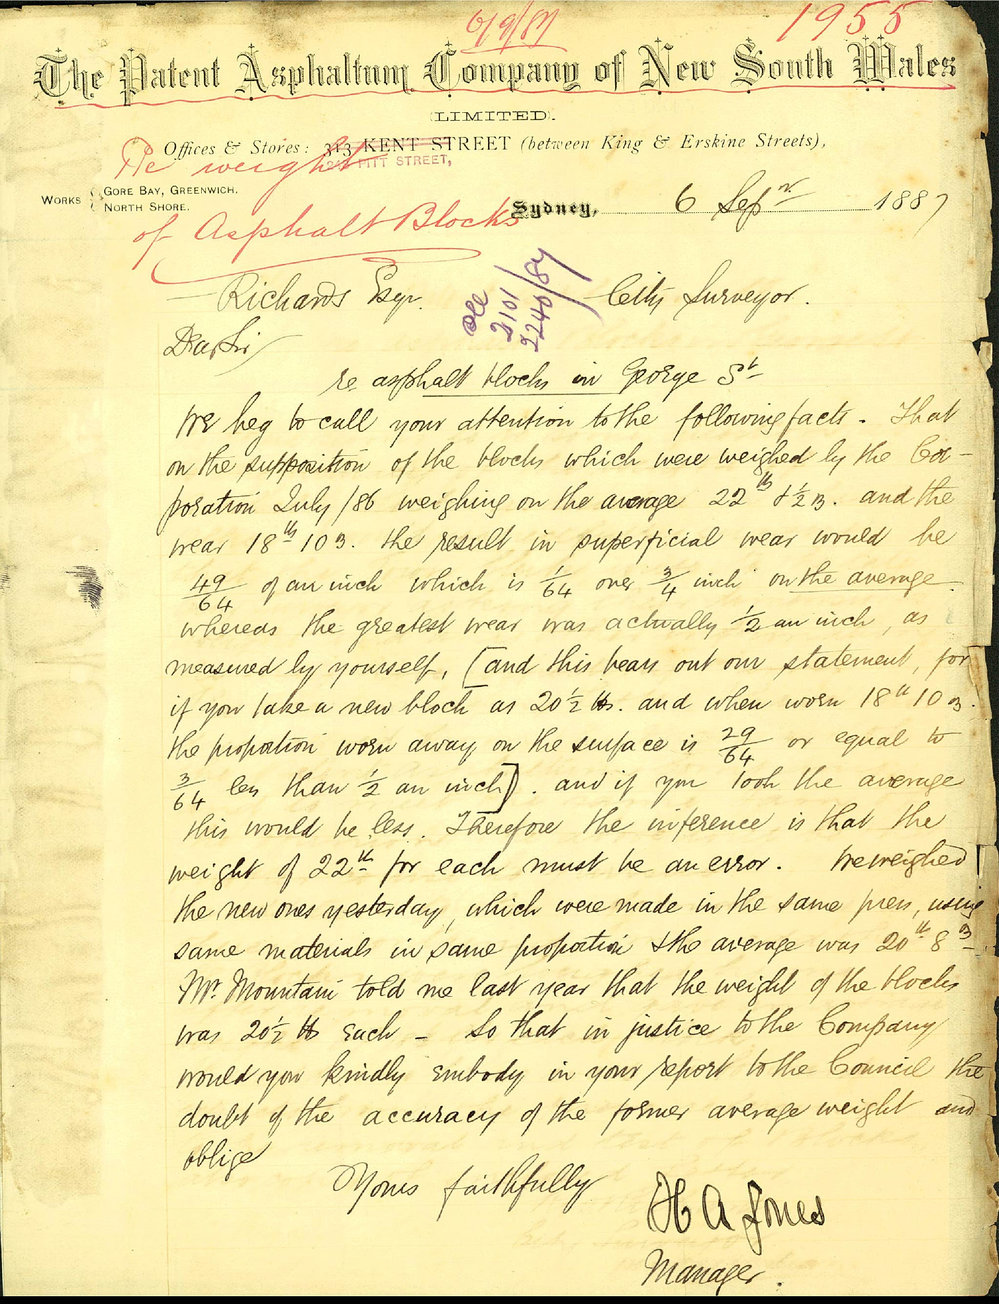 6/9/87
1955
The Patent Asphaltum Company of New South Wales
(LIMITED).
Offices & Stores: 313 KENT STREET (between King & Erskine Streets),
PITT STREET,
Re weight
WORKS { GORE BAY, GREENWICH.
NORTH SHORE.
of Asphalt Blocks
Sydney, 6 Sepr 1887
Richards Esqr. City Surveyor.
See
2101
2240/87
Dear Sir
re asphalt blocks in George St
We beg to call your attention to the following facts. That
on the supposition of the blocks which were weighed by the Cor-
poration July /86 weighing on the average 22 lb & ½ oz. and the
wear 18 lb 10 oz. the result in superficial wear would be
49/64 of an inch which is 1/64 over 3/4 inch on the average
whereas the greatest wear was actually ½ an inch, as
measured by yourself, [and this bears out our statement, for
if you take a new block as 20½ lbs. and when worn 18 lb 10 oz.
the proportion worn away on the surface is 29/64 or equal to
3/64 less than ½ an inch]. and if you took the average
this would be less. Therefore the inference is that the
weight of 22 lb for each must be an error. We weighed
the new ones yesterday, which were made in the same press, using
same materials in same proportion & the average was 20 lb 8 oz
Mr. Mountain told me last year that the weight of the blocks
was 20½ lb each - So that in justice to the Company
would you kindly embody in your report to the Council the
doubt of the accuracy of the former average weight and
oblige
Yours faithfully
H A Jones
Manager.